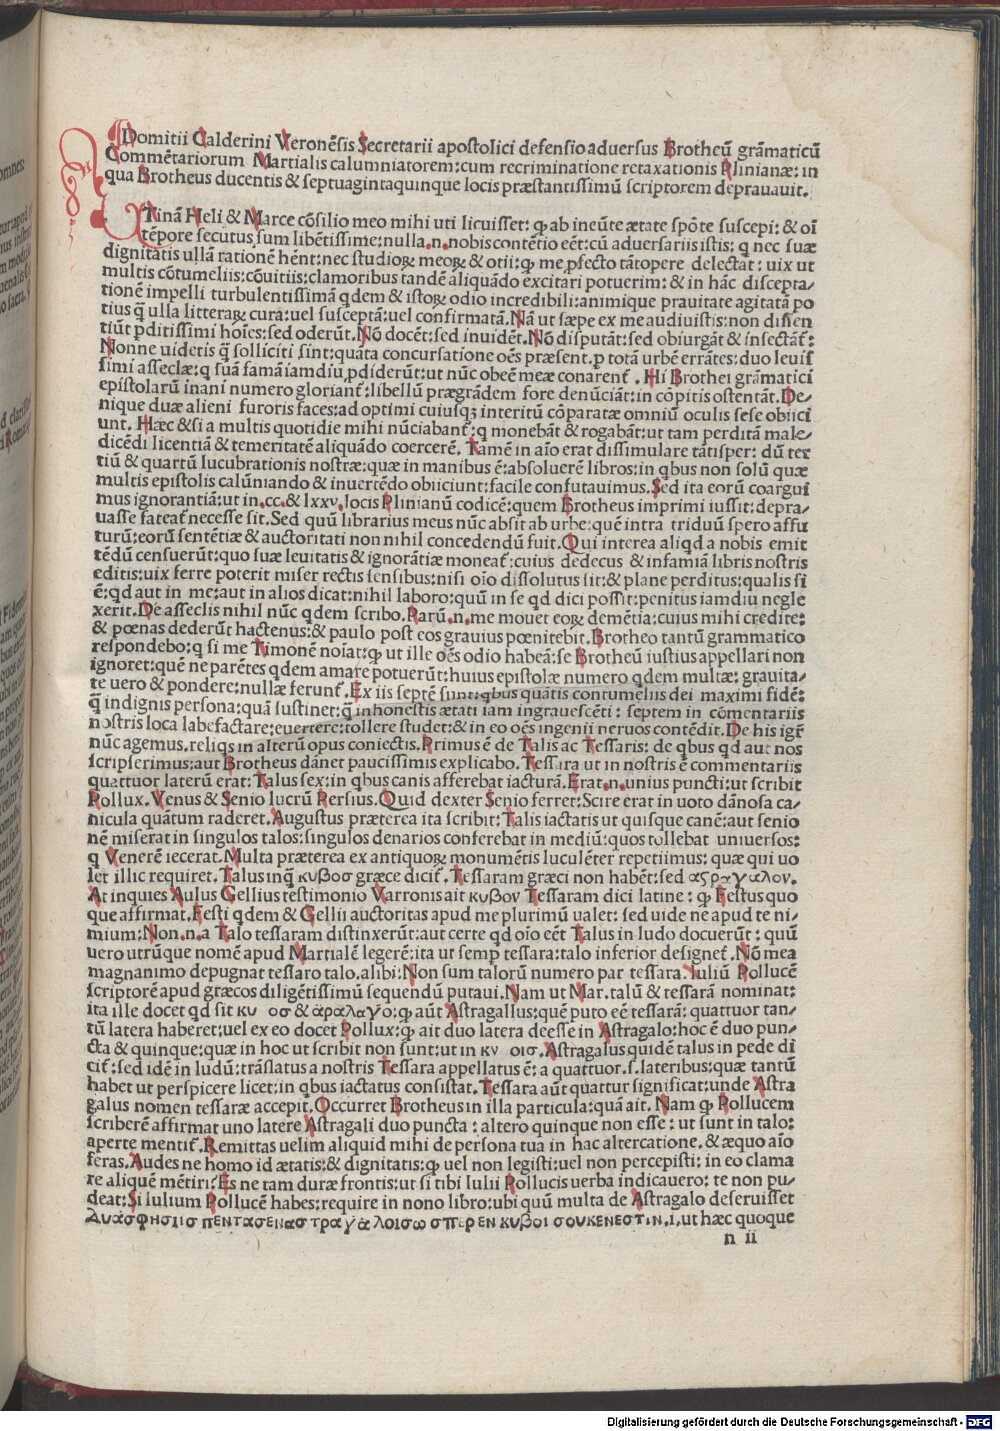 Domitii Calderini Veronēsis Secretarii apostolici defensio aduersus Brotheū grāmaticū
Commētariorum Martialis calumniatorem: cum recriminatione retaxationis Plinianæ: in
qua Brotheus ducentis & septuagintaquinque locis præstantissimū scriptorem deprauauit.
VTinā Heli & Marce cōsilio meo mihi uti licuisset: ꝙ ab ineūte ætate spōte suscepi: & oī
tēpore secutus sum libētissime: nulla .n. nobis contētio eēt: cū aduersariis istis: q nec suæ
dignitatis ullā rationē hēnt: nec studioꝝ meoꝝ & otii: ꝙ me ꝓfecto tātopere delectat: uix ut
multis cōtumeliis: cōuitiis: clamoribus tandē aliquādo excitari potuerim: & in hāc discepta/
tionē impelli turbulentissimā qdem & istoꝝ odio incredibili: animique prauitate agitatā po
tius q̄ ulla litteraꝝ cura: uel susceptā: uel confirmatā. Nā ut sæpe ex me audiuistis: non dissen
tiūt ꝑditissimi hoīes: sed oderūt. Nō docēt: sed inuidēt. Nō disputāt: sed obiurgāt & insectāt̄:
Nonne uidetis q̄ solliciti sint: quāta concursatione oēs præsent. ꝑ totā urbē errātes: duo leuis
simi asseclæ: q suā famā iamdiu ꝓdiderūt: ut nūc obeē meæ conarent̄. Hi Brothei grāmatici
epistolarū inani numero gloriant̄: libellū prægrādem fore denūciāt: in cōpitis ostentāt. De/
nique duæ alieni furoris faces: ad optimi cuiusqꝫ interitū cōparatæ omniū oculis sese obiici
unt. Hæc & si a multis quotidie mihi nūciabant̄: q monebāt & rogabāt: ut tam perditā male/
dicēdi licentiā & temeritatē aliquādo coercerē. Tamē in aīo erat dissimulare tātisper: dū ter
tiū & quartū lucubrationis nostræ: quæ in manibus ē: absoluerē libros: in qbus non solū quæ
multis epistolis calūniando & inuertēdo obiiciunt: facile confutauimus. Sed ita eorū coargui
mus ignorantiā: ut in .cc. & lxxv. locis Plinianū codicē: quem Brotheus imprimi iussit: depra/
uasse fateat̄ necesse sit. Sed quū librarius meus nūc absit ab urbe: quē intra triduū spero affu
turū: eorū sentētiæ & auctoritati non nihil concedendū fuit. Qui interea aliqd a nobis emit
tēdū censuerūt: quo suæ leuitatis & ignorātiæ moneat̄: cuius dedecus & infamiā libris nostris
editis: uix ferre poterit miser rectis sensibus: nisi oīo dissolutus sit: & plane perditus: qualis si
ē: qd aut in me: aut in alios dicat: nihil laboro: quū in se qd dici possit: penitus iamdiu negle
xerit. De asseclis nihil nūc qdem scribo. Parū .n. me mouet eoꝝ demētia: cuius mihi credite:
& pœnas dederūt hactenus: & paulo post eos grauius pœnitebit. Brotheo tantū grammatico
respondebo: q si me Timonē noīat: ꝙ ut ille oēs odio habeā: se Brotheū iustius appellari non
ignoret: quē ne parētes qdem amare potuerūt: huius epistolæ numero qdem multæ: grauita/
te uero & pondere: nullæ ferunt̄. Ex iis septē sunt: qbus quātis contumeliis dei maximi fidē:
q̄ indignis persona: quā sustinet: q̄ inhonestis ætati iam ingrauescēti: septem in cōmentariis
nostris loca labefactare: euertere: tollere studet: & in eo oēs ingenii neruos contēdit. De his igr̄
nūc agemus, reliqs in alterū opus coniectis. Primus ē de Talis ac Tessaris: de qbus qd aut nos
scripserimus: aut Brotheus dānet paucissimis explicabo. Tessara ut in nostris ē commentariis
quattuor laterū erat: Talus sex: in qbus canis afferebat iacturā. Erat .n. unius puncti: ut scribit
Pollux. Venus & Senio lucrū Persius. Quid dexter Senio ferret: Scire erat in uoto dānosa ca/
nicula quātum raderet. Augustus præterea ita scribit: Talis iactatis ut quisque canē: aut senio
nē miserat in singulos talos: singulos denarios conferebat in mediū: quos tollebat uniuersos:
q Venerē iecerat. Multa præterea ex antiquoꝝ monumētis luculēter repetiimus: quæ qui uo
let illic requiret. Talus inq̄ κυβοσ græce dicit̄. Tessaram græci non habēt: sed αςραγαλον.
At inquies Aulus Gellius testimonio Varronis ait κυβον Tessaram dici latine: ꝙ Festus quo
que affirmat. Festi qdem & Gellii auctoritas apud me plurimū ualet: sed uide ne apud te ni/
mium: Non .n. a Talo tessaram distinxerūt: aut certe qd oīo eēt Talus in ludo docuerūt: quū
uero utrūque nomē apud Martialē legerē: ita ut semꝑ tessara: talo inferior designet̄. Nō mea
magnanimo depugnat tessaro talo. alibi: Non sum talorū numero par tessara. Iuliū Pollucē
scriptorē apud græcos diligētissimū sequendū putaui. Nam ut Mar. talū & tessarā nominat:
ita ille docet qd sit κυ οσ & αραλαγο: ꝙ aūt Astragallus: quē puto eē tessarā: quattuor tan/
tū latera haberet: uel ex eo docet Pollux: ꝙ ait duo latera deesse in Astragalo: hoc ē duo pun/
cta & quinque: quæ in hoc ut scribit non sunt: ut in κυ οισ. Astragalus quidē talus in pede di
cit̄: sed idē in ludū: trāslatus a nostris Tessara appellatus ē: a quattuor .s. lateribus: quæ tantū
habet ut perspicere licet: in qbus iactatus consistat. Tessara aūt quattur significat: unde Astra
galus nomen tessaræ accepit. Occurret Brotheus in illa particula: quā ait. Nam ꝙ Pollucem
scriberē affirmat uno latere Astragali duo puncta: altero quinque non esse: ut sunt in talo:
aperte mentit̄. Remittas uelim aliquid mihi de persona tua in hac altercatione. & æquo aīo
feras. Audes ne homo id ætatis: & dignitatis: ꝙ uel non legisti: uel non percepisti: in eo clama
re aliquē mētiri: Es ne tam duræ frontis: ut si tibi Iulii Pollucis uerba indicauero: te non pu/
deat: Si Iulium Pollucē habes: require in nono libro: ubi quū multa de Astragalo deseruisset
ΔυασΦΗσΙΙσ πενταςεναςτραγαλοισωσπερενκυβοισουκενεστιν. i. ut hæc quoque
n ii
Digitalisierung gefördert durch die Deutsche Forschungsgemeinschaft - DFG